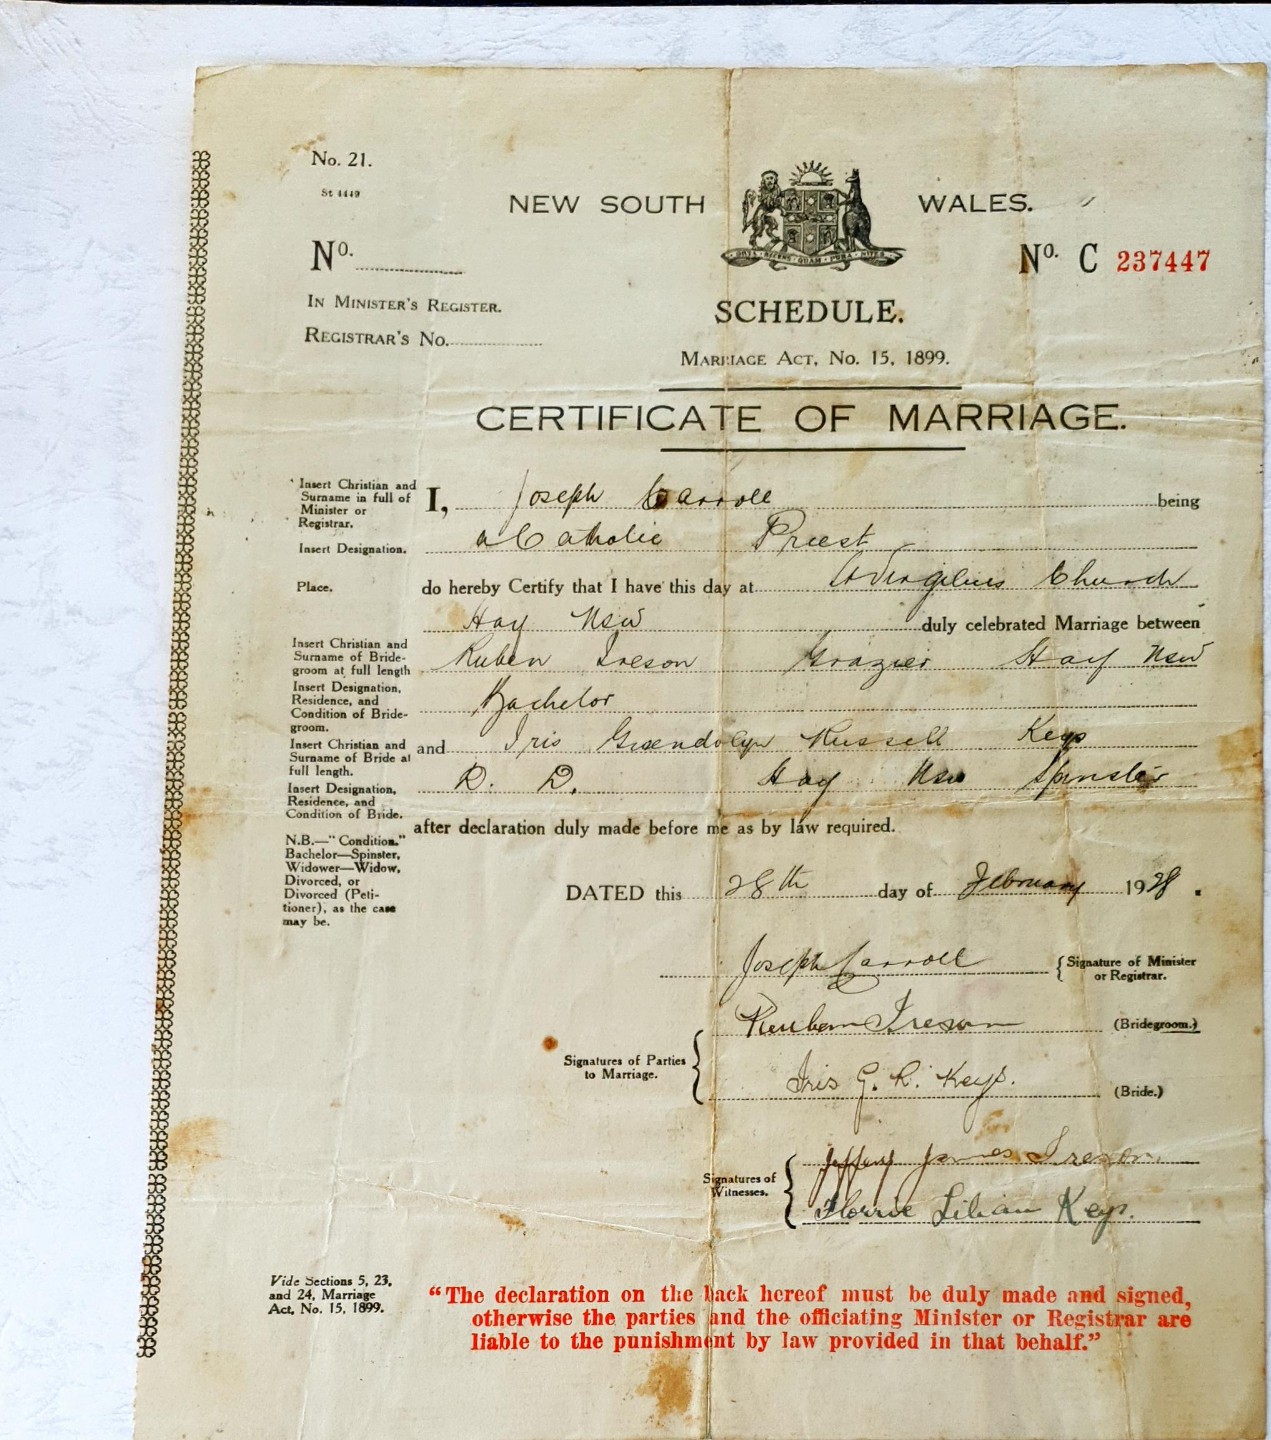 No. 21.
St 4449
NEW SOUTH WALES.
No. ............
No. C 237447
IN MINISTER'S REGISTER.
REGISTRAR'S No.............
SCHEDULE.
MARRIAGE ACT, No. 15, 1899.
CERTIFICATE OF MARRIAGE.
Insert Christian and
Surname in full of
Minister or
Registrar.
I, Joseph Carroll being
Insert Designation.
a Catholic Preest
Place.
do hereby Certify that I have this day at Church
Hay NSW duly celebrated Marriage between
Insert Christian and
Surname of Bride-
groom at full length
Ruben Ireson Grazier Hay NSW
Insert Designation,
Residence, and
Condition of Bride-
groom.
Bachelor
Insert Christian and
Surname of Bride at
full length.
and Iris Gwendolyn Russell Keys
Insert Designation,
Residence, and
Condition of Bride.
D. D. Hay NSW Spinster
after declaration duly made before me as by law required.
N.B.—"Condition."
Bachelor—Spinster,
Widower—Widow,
Divorced, or
Divorced (Peti-
tioner), as the case
may be.
DATED this 28th day of February 1928.
Joseph Carroll {Signature of Minister
or Registrar.
Reuben Ireson (Bridegroom.)
Signatures of Parties
to Marriage.
Iris G. R. Keys. (Bride.)
Signatures of
Witnesses.
Jeffery James Ireson.
Florrie Lilian Keys.
Vide Sections 5, 23,
and 24, Marriage
Act, No. 15, 1899.
"The declaration on the back hereof must be duly made and signed,
otherwise the parties and the officiating Minister or Registrar are
liable to the punishment by law provided in that behalf."